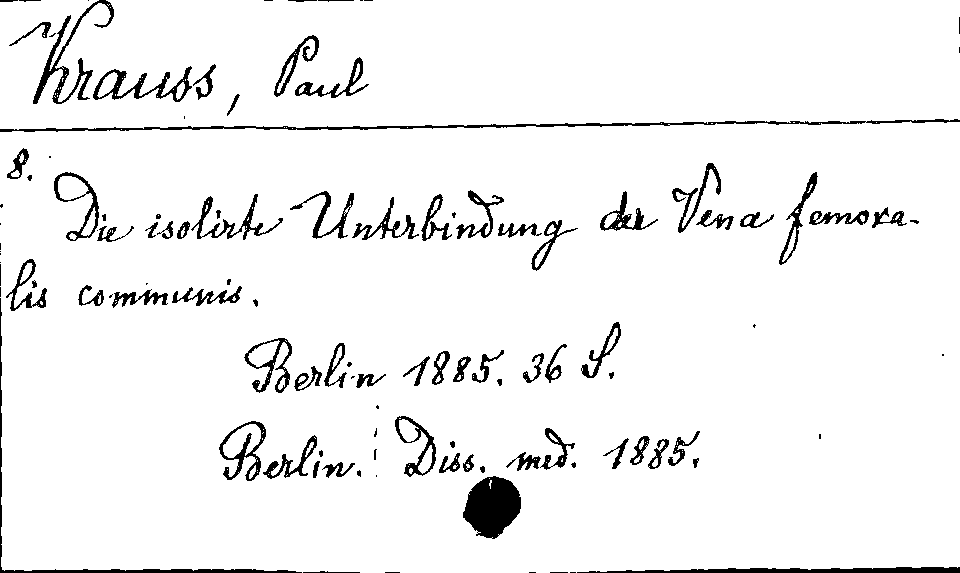 Krauss, Paul
8.
Die isolirte Unterbindung der Vena femora-
lis communis.
Berlin 1885. 36 S.
Berlin. Diss. med. 1885.